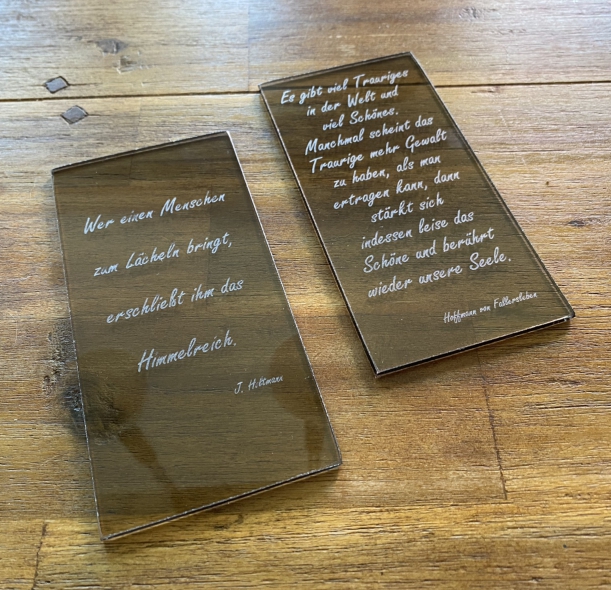 Wer einen Menschen
zum Lächeln bringt,
erschließt ihm das
Himmelreich.
J. Holtmann
Es gibt viel Trauriges
in der Welt und
viel Schönes.
Manchmal scheint das
Traurige mehr Gewalt
zu haben, als man
ertragen kann, dann
stärkt sich
indessen leise das
Schöne und berührt
wieder unsere Seele.
Hoffmann von Fallersleben